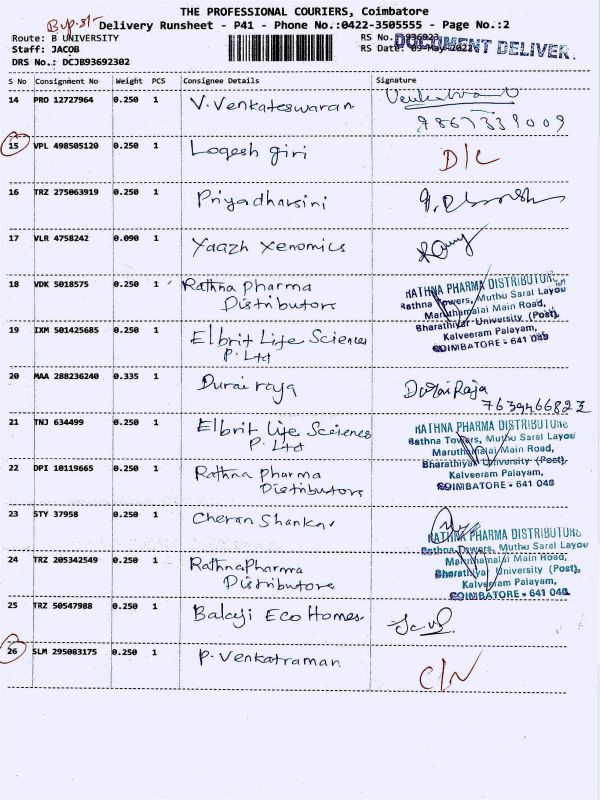 THE PROFESSIONAL COURIERS, Coimbatore
Delivery Runsheet - P41 - Phone No.:0422-3505555 - Page No.:2
Route: B UNIVERSITY
Staff: JACOB
DRS No.: DCJB93692302
RS No. 936923
RS Date: 09-May-2022
DOCUMENT DELIVER
S No Consignment No Weight PCS Consignee Details Signature
14 PRO 12727964 0.250 1 V. Venkateswaran
9867339009
15 VPL 498505120 0.250 1 Logesh giri D/L
16 TRZ 275063919 0.250 1 Priyadharsini
17 VLR 4758242 0.090 1 Yaazh Xenomics
18 VDK 5018575 0.250 1 Rathna pharma
Distributors
RATHNA PHARMA DISTRIBUTORS
Rathna Towers, Muthu Saral Layou
Maruthamalai Main Road,
Bharathiyar University (Post),
Kalveeram Palayam,
COIMBATORE - 641 046
19 IXM 501425685 0.250 1 Elbrit Life Sciences
P. Ltd
20 MAA 288236240 0.335 1 Durai raja DuraiRaja
7639466823
21 TNJ 634499 0.250 1 Elbrit Life Sceienes
P. Ltd
RATHNA PHARMA DISTRIBUTORS
Rathna Towers, Muthu Saral Layou
Maruthamalai Main Road,
Bharathiyar University (Post),
Kalveeram Palayam,
COIMBATORE - 641 046
22 DPI 10119665 0.250 1 Rathna pharma
Distributors
23 STY 37958 0.250 1 Cheran Shankar
RATHNA PHARMA DISTRIBUTORS
Rathna Towers, Muthu Saral Layou
Maruthamalai Main Road,
Bharathiyar University (Post),
Kalveeram Palayam,
COIMBATORE - 641 046
24 TRZ 205342549 0.250 1 RathnaPharma
Distributors
25 TRZ 50547988 0.250 1 Balaji Eco Homes
26 SLM 295083175 0.250 1 P. Venkatraman C/N